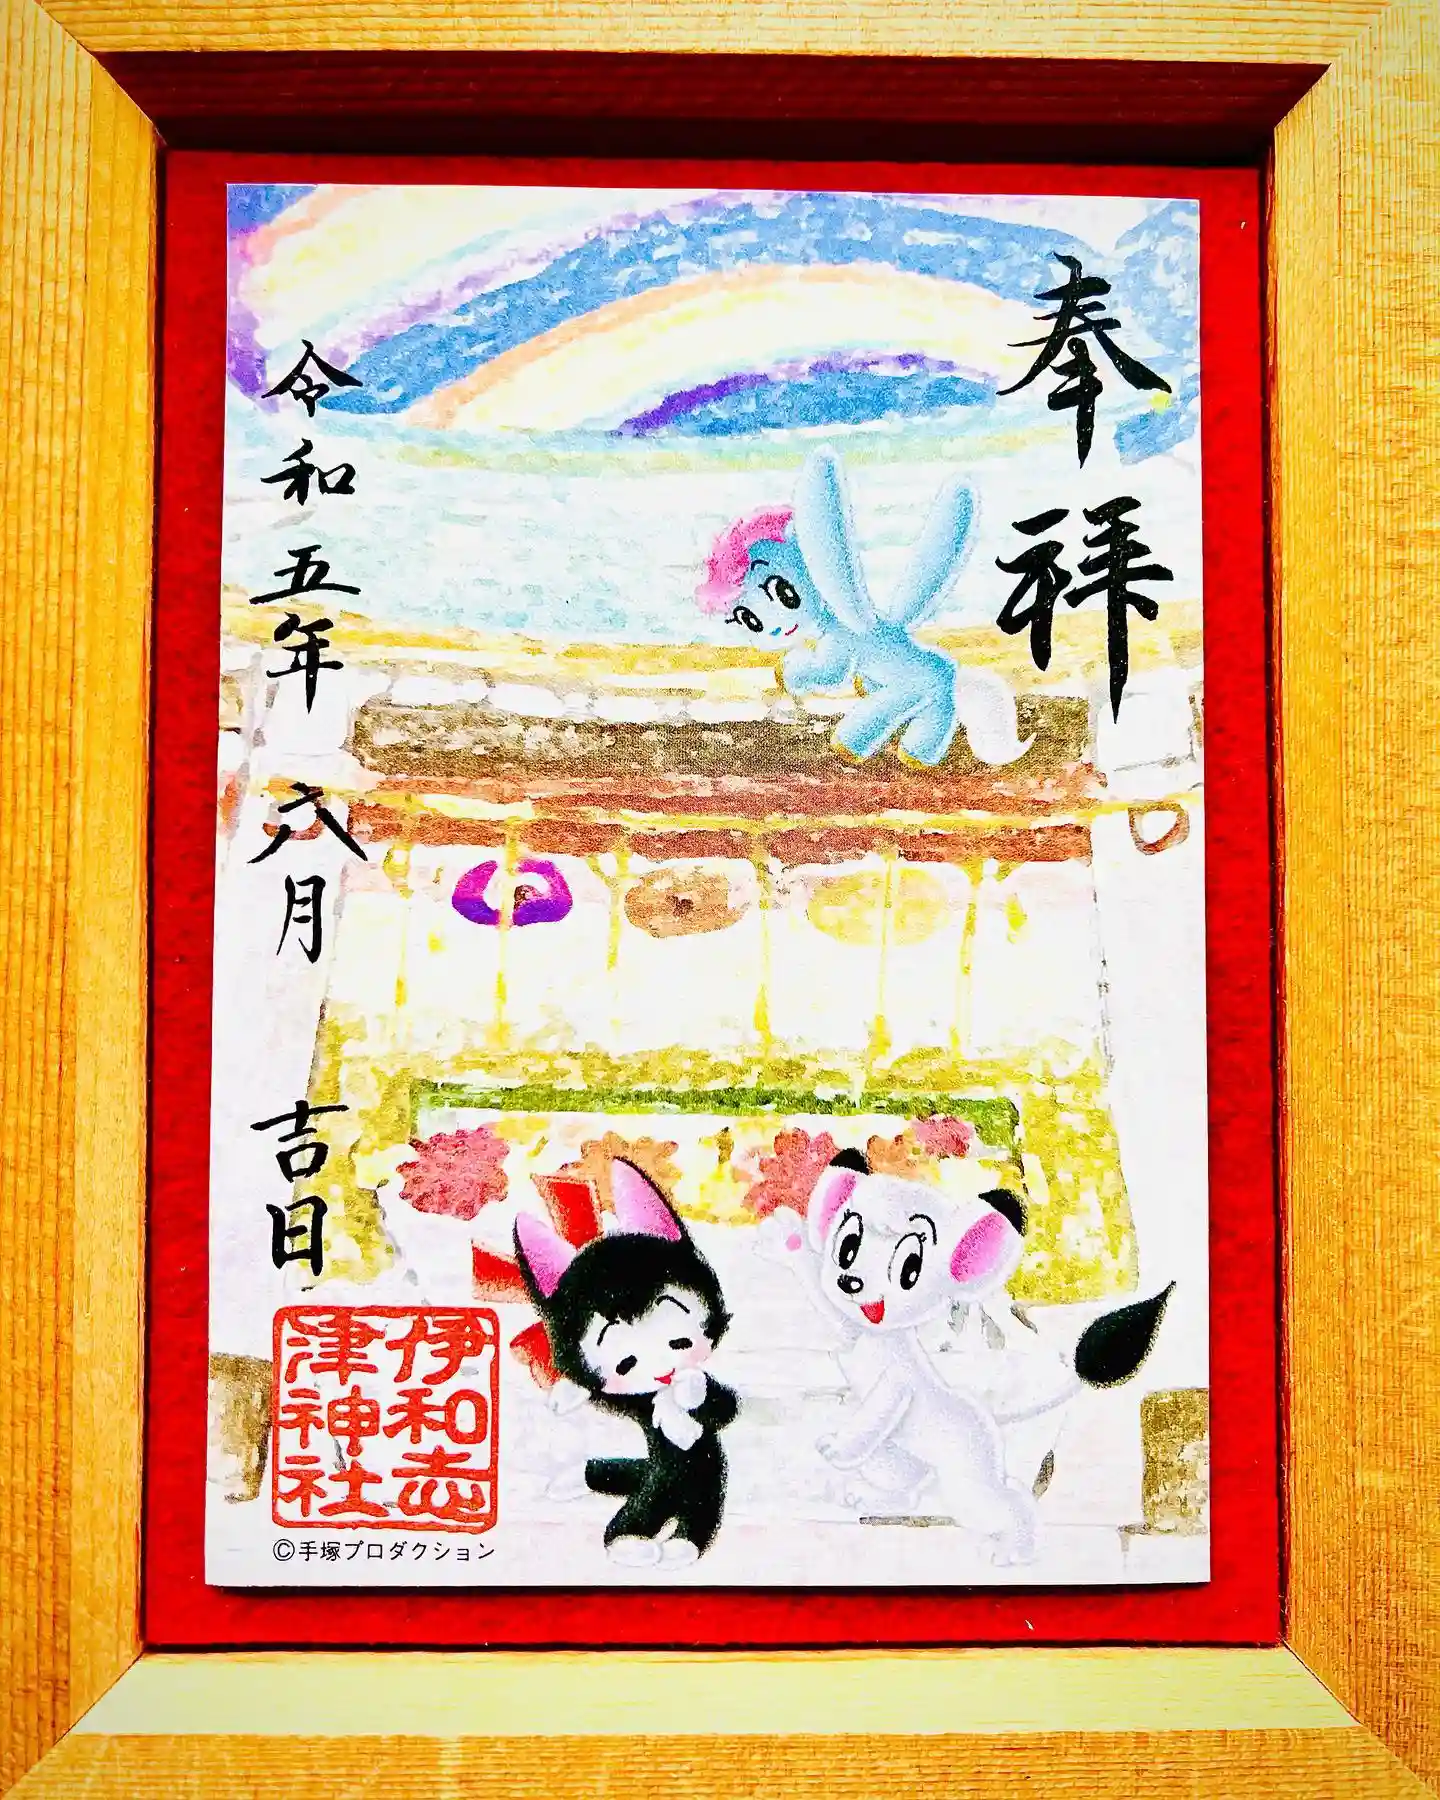 奉拝
令和五年 六月 吉日
伊和志
津神社
©手塚プロダクション